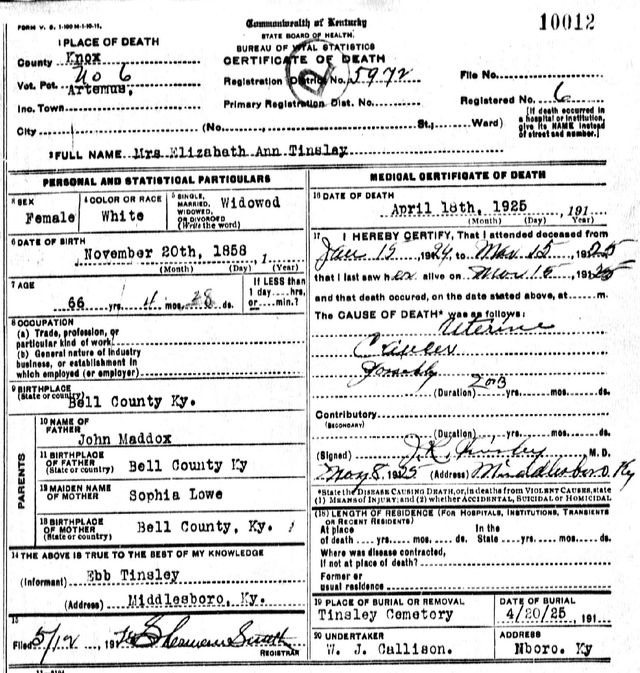 FORM V. S. 1-100 M-1-10-11.
Commonwealth of Kentucky
10012
STATE BOARD OF HEALTH.
BUREAU OF VITAL STATISTICS
CERTIFICATE OF DEATH
1 PLACE OF DEATH
County Knox
Vot. Pct. No 6
Artemus,
Inc. Town
City (No., St.; Ward)
Registration District No. 5972
Primary Registration Dist. No.
File No.
Registered No. 6
(If death occurred in
a hospital or institution,
give its NAME instead
of street and number.)
2 FULL NAME Mrs Elizabeth Ann Tinsley
PERSONAL AND STATISTICAL PARTICULARS
3 SEX
Female
4 COLOR OR RACE
White
5 SINGLE,
MARRIED,
WIDOWED,
OR DIVORCED
(Write the word)
Widowed
6 DATE OF BIRTH
November 20th, 1858, 1
(Month) (Day) (Year)
7 AGE
66 yrs. 4 mos. 28 ds.
If LESS than
1 day----hrs,
or----min.?
8 OCCUPATION
(a) Trade, profession, or
particular kind of work
(b) General nature of industry
business, or establishment in
which employed (or employer)
9 BIRTHPLACE
(State or country)
Bell County Ky.
PARENTS
10 NAME OF
FATHER
John Maddox
11 BIRTHPLACE
OF FATHER
(State or country)
Bell County Ky
12 MAIDEN NAME
OF MOTHER
Sophia Lowe
13 BIRTHPLACE
OF MOTHER
(State or country)
Bell County, Ky.
14 THE ABOVE IS TRUE TO THE BEST OF MY KNOWLEDGE
(Informant) Ebb Tinsley
(Address) Middlesboro, Ky.
15
Filed 5/12, 191
REGISTRAR
MEDICAL CERTIFICATE OF DEATH
16 DATE OF DEATH
April 18th, 1925, 191
(Month) (Day) (Year)
17 I HEREBY CERTIFY, That I attended deceased from
Jan 15 1924, to Mar 15, 1925
that I last saw her alive on Mar 15, 1925
and that death occured, on the date stated above, at m.
The CAUSE OF DEATH* was as follows:
Uterine
Cancer
Possibly
2 or 3
(Duration) yrs. mos. ds.
Contributory
(SECONDARY)
(Duration) yrs. mos. ds.
(Signed) J. R. M.D.
May 8, 1925 (Address) Middlesboro, Ky
*State the DISEASE CAUSING DEATH, or, in deaths from VIOLENT CAUSES, state
(1) MEANS OF INJURY; and (2) whether ACCIDENTAL, SUICIDAL OR HOMICIDAL
(18) LENGTH OF RESIDENCE (FOR HOSPITALS, INSTITUTIONS, TRANSIENTS
OR RECENT RESIDENTS)
At place In the
of death yrs. mos. ds. State yrs. mos. ds.
Where was disease contracted,
if not at place of death?
Former or
usual residence
19 PLACE OF BURIAL OR REMOVAL
Tinsley Cemetory
DATE OF BURIAL
4/20/25, 191
20 UNDERTAKER
W. J. Callison.
ADDRESS
Nboro. Ky